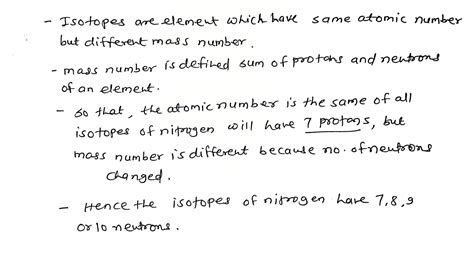 - Isotopes are element which have same atomic number
but different mass number.
- mass number is defined sum of protons and neutrons
of an element.
- so that, the atomic number is the same of all
isotopes of nitrogen will have 7 protons, but
mass number is different because no. of neutrons
changed.
- Hence the isotopes of nitrogen have 7,8,9
or 10 neutrons.